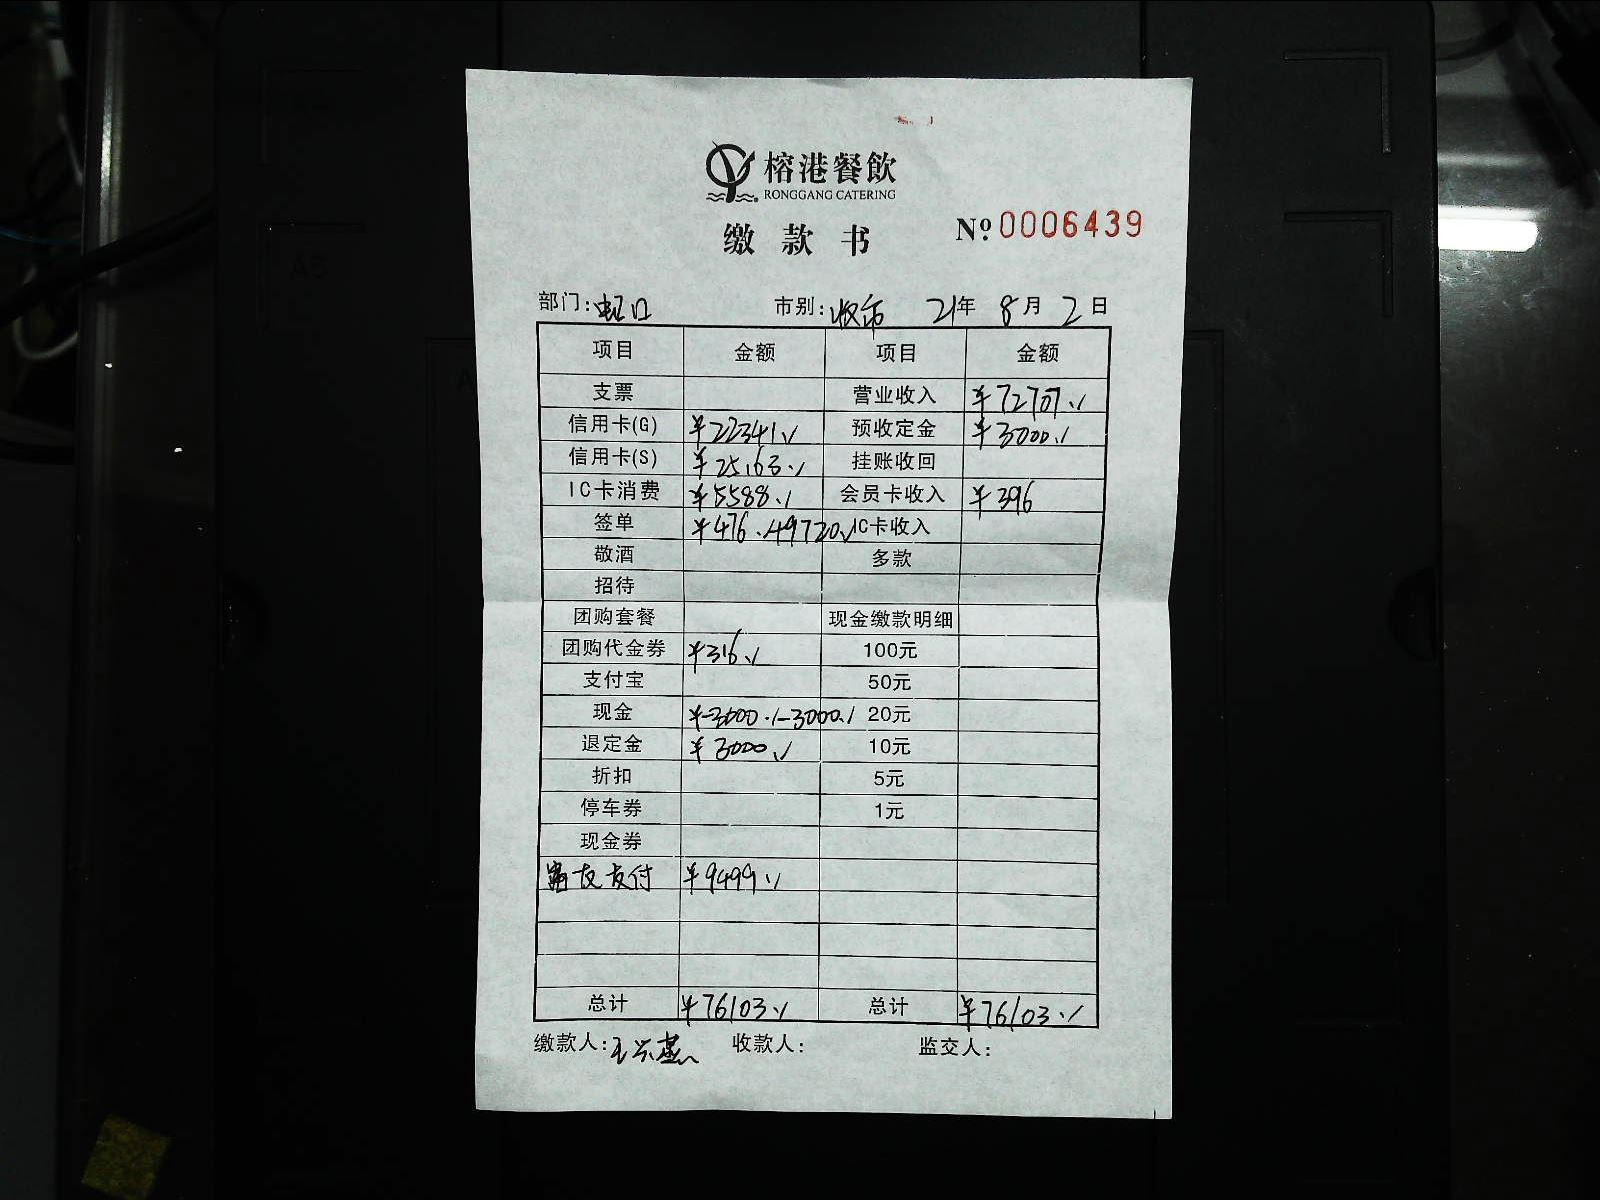 榕港餐飲
RONGGANG CATERING
缴款书 Nº 0006439
部门:虹口 市别:收市 21年 8月 2日
项目 金额 项目 金额
支票 营业收入 ¥72707./
信用卡(G) ¥22341./ 预收定金 ¥3000./
信用卡(S) ¥25163./ 挂账收回
IC卡消费 ¥5588./ 会员卡收入 ¥396
签单 ¥476./+9720./ IC卡收入
敬酒 多款
招待
团购套餐 现金缴款明细
团购代金券 ¥316./ 100元
支付宝 50元
现金 ¥3000./-3000./ 20元
退定金 ¥3000./ 10元
折扣 5元
停车券 1元
现金券
富友支付 ¥9499./
总计 ¥76103./ 总计 ¥76103./
缴款人:王兴燕 收款人: 监交人: